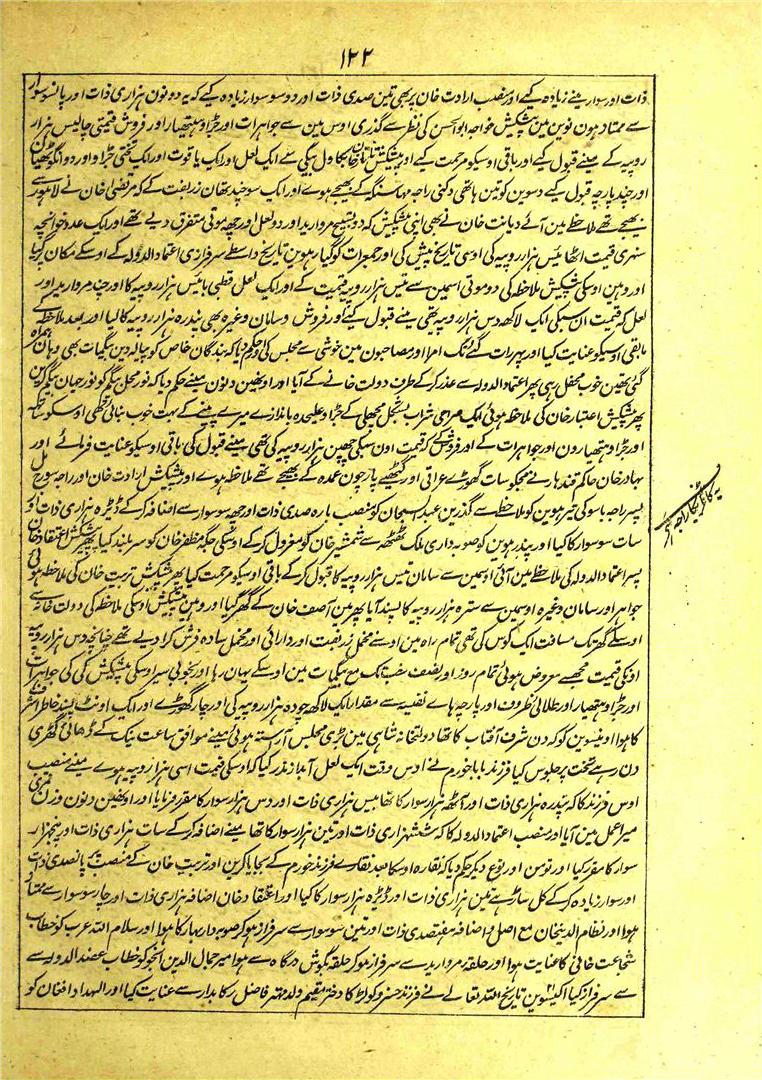 ۱۲۲
ذات اور سوار مینے زیادہ کیے اور منصب ارادت خان پر بھی تین صدی ذات اور دو سو سوار زیادہ کیے کہ یہ دونون ہزاری ذات اور پانسو سوار
سے ممتاز ہون نوین مین پیشکش خواجہ ابوالحسن کی نظر سے گذری اوس مین سے جواہرات اور جڑاو ہتھیار اور فروش قیمتی چالیس ہزار
روپیہ کے مینے قبول کیے اور باقی اوسیکو مرحمت کیے اور پیشکش تاتار خان بکاول بیگی سے ایک لعل اور ایک یاقوت اور ایک تختی جڑاو اور دو انگوٹھیان
اور چند پارچہ قبول کیے دسوین کو تین ہاتھی دکنی راجہ مہا سنگہ کے بھیجے ہوے اور ایک سو چند تھان زربفت کے کہ مرتضی خان نے لاہور سے
بھیجے تھے ملاحظہ مین آئے دیانت خان نے بھی اپنی پیشکش کہ دو تسبیح مروارید اور دو لعل اور چھہ موتی متفرق دیے تھے اور ایک عدد خوانچہ
سنہری قیمت اٹھائیس ہزار روپیہ کی اوسی تاریخ پیش کی اور جمعرات کو گیارہوین تاریخ واسطے سرفرازی اعتماد الدولہ کے اوسکے مکان پر گیا
اور وہین اوسکی پیشکش ملاحظہ کی دو موتی اسمین سے تیس ہزار روپیہ قیمت کے اور ایک لعل قطبی بائیس ہزار روپیہ کا اور چند مروارید اور
لعل کہ قیمت ان سبکی ایک لاکھہ دس ہزار روپیہ تھی مینے قبول کیے اور فروش و سامان وغیرہ بھی پندرہ ہزار روپیہ کا لیا اور بعد ملاحظہ کے
مابقی اوسیکو عنایت کیا اور پہر رات گئے تک امرا اور مصاحبون مین خوشی سے مجلس کی اور حکم دیا کہ بندگان خاص کو پیالہ دین بیگمات بھی وہان ہمراہ
گئی تھین خوب محفل رہی پھر اعتماد الدولہ سے عذر کرکے طرف دولت خانے کے آیا اور اونھین دنون مینے حکم دیا کہ نور محل بیگم کو نور جہان بیگم کہین
پھر پیشکش اعتبار خان کی ملاحظہ ہوئی ایک صراحی شراب بشکل مچھلی کے جڑاو علیحدہ باندازے میرے پینے کے بہت خوب بنائی تھی اوسکو ساتھہ
اور جڑاو ہتھیارون اور جواہرات کے اور فروش کے کہ قیمت اون سبکی چھپن ہزار روپیہ کی تھی مینے قبول کی باقی اوسیکو عنایت فرمائے اور
بہادر خان حاکم قندہار نے بھیجے سات گھوڑے عراقی اور گٹھے پارچون عمدہ کے بھیجے تھے ملاحظہ ہوے اور پیشکش ارادت خان اور راجہ سورج مل
پسر راجہ باسو کی تیرہوین کو ملاحظے سے گذرین عبد سبحان کو منصب بارہ صدی ذات اور چھہ سو سوار سے اضافہ کرکے ڈیڑہ ہزاری ذات اور
سات سو سوار کا کیا اور پندرہوین کو صوبہ داری ملک ٹھٹھہ سے شمشیر خان کو معزول کرکے اوسکی جگہ مظفر خان کو سربلند کیا پھر پیشکش اعتقاد خان
پسر اعتماد الدولہ کی ملاحظہ مین آئی اوسمین سے سامان تیس ہزار روپیہ کا قبول کرکے باقی اوسیکو مرحمت کیا پھر پیشکش تربیت خان کی ملاحظہ ہوئی
جواہر اور سامان وغیرہ اوسمین سے سترہ ہزار روپیہ کا پسند آیا پھر مین آصف خان کے گھر گیا اور وہین پیشکش اوسکی ملاحظہ کی دولت خانہ سے
اوسکے گھر تک مسافت ایک کوس کی تھی تمام راہ مین اوسے مخمل زربفت اور دارائی اور مخمل سادہ فرش کرا دیے تھے چنانچہ دس ہزار روپیہ
اونکی قیمت مجھسے معروض ہوئی تمام روز اور نصف شب تک مع بیگمات مین اوسکے یہان رہا اور بخوبی سیر اوسکی پیشکش کی کی جواہرات
اور جڑاو ہتھیار اور طلائی ظروف اور پارچہ ہاے نفیسہ سے مقدار ایک لاکھہ چودہ ہزار روپیہ کی اور چار گھوڑے اور ایک اونٹ پسند خاطر اشرف
کا ہوا اونیسوین کو کہ دن شرف آفتاب کا تھا دولتخانہ شاہی مین بڑی مجلس آراستہ ہوئی مینے موافق ساعت نیک کے ڈھائی گھڑی
دن رہے تخت پر جلوس کیا فرزند بابا خورم نے اوس وقت ایک لعل آبدار نذر کیا کہ اوسکی قیمت اسی ہزار روپیہ ہوے مینے منصب
اوس فرزند کا کہ پندرہ ہزاری ذات اور آٹھہ ہزار سوار کا تھا بیس ہزاری ذات اور دس ہزار سوار کا مقرر فرمایا اور اونھین دنون وزن قمری
میرا عمل مین آیا اور منصب اعتماد الدولہ کا کہ ششہزاری ذات اور تین ہزار سوار کا تھا مینے اضافہ کرکے سات ہزاری ذات اور پنجہزار
سوار کا مقرر کیا اور تومن اور توغ دیکر حکم دیا کہ نقارہ اوسکا بعد نقارے فرزند خورم کے بجایا کرین اور تربیت خان کے منصب پر پانصدی ذات
اور سوار زیادہ کرکے کل ساڑھے تین ہزاری ذات اور ڈیڑہ ہزار سوار کا کیا اور اعتقاد خان اضافہ ہزاری ذات اور چار سو سوار سے ممتاز
ہوا اور نظام الدینخان مع اصل و اضافہ ہفتصدی ذات اور تین سو سوار سے سرفراز ہوکر صوبہ دار بہار کا ہوا اور سلام اللہ عرب کو خطاب
شجاعت خانی کا عنایت ہوا اور حلقہ مروارید سے سرفراز ہوکر حلقہ بگوش درگاہ سے ہوا میر جمال الدین انجو کو خطاب عضد الدولہ سے
سے سرفراز کیا اکیسوین تاریخ اللہ تعالے نے فرزند خسرو کو لڑکا دختر مقیم ولد مہتر فاضل رکابدار سے عنایت کیا اور الہداد افغان کو